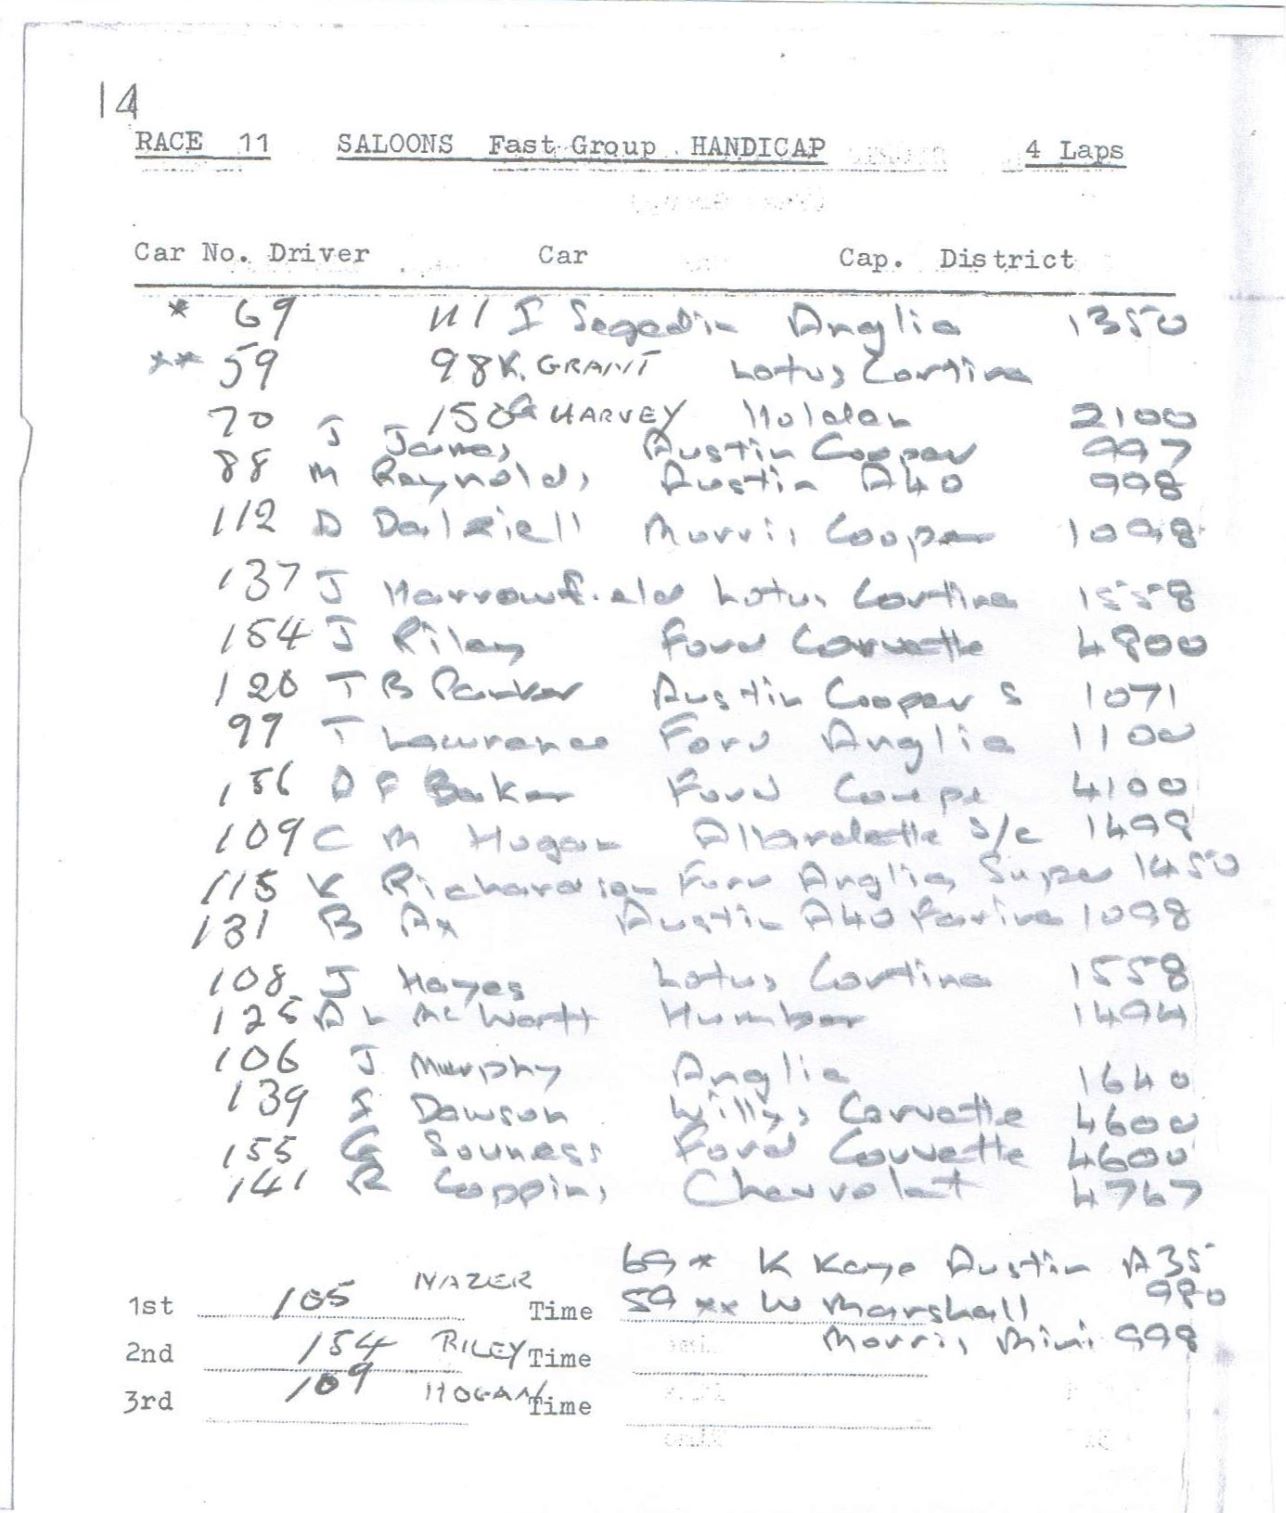 14
RACE 11 SALOONS Fast Group HANDICAP 4 Laps
Car No. Driver Car Cap. District
* 69 111 I Segedin Anglia 1350
** 59 98 K. GRANT Lotus Cortina
70 150 G HARVEY Holden 2100
J James Austin Cooper 997
88 M Reynolds Austin A40 998
112 D Dalziell Morris Cooper 1098
137 J Harrowfield Lotus Cortina 1558
154 J Riley Ford Corvette 4800
120 T B Parker Austin Cooper S 1071
99 T Lawrence Ford Anglia 1100
156 D F Baker Ford Coupe 4100
109 C M Hogan Allardette S/c 1498
115 K Richardson Ford Anglia Super 1450
131 B Ax Austin A40 Farina 1098
108 J Hayes Lotus Cortina 1558
125 A L Mc Wortt Humber 1494
106 J Murphy Anglia 1640
139 S Dawson Willys Corvette 4600
155 G Souness Ford Corvette 4600
141 R Coppins Chevrolet 4767
69 * K Kaye Austin A35 980
1st 105 NAZER Time 59 ** W Marshall
Morris Mini 998
2nd 154 RILEY Time
3rd 109 HOGAN Time